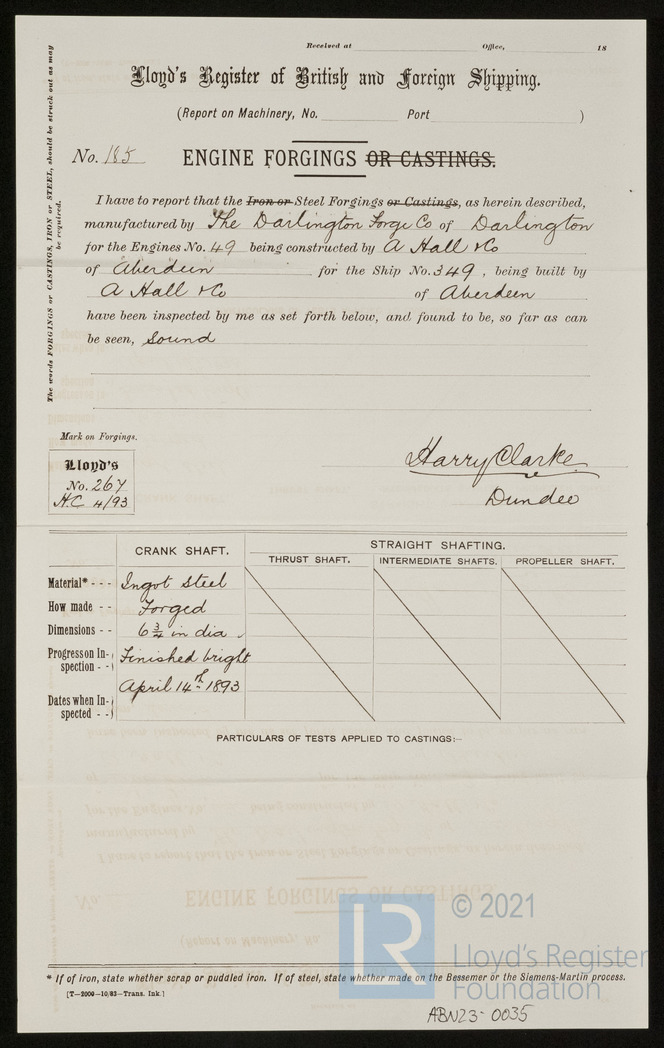 Received at Office, 18
Lloyd's Register of British and Foreign Shipping.
(Report on Machinery, No. Port )
No. 185 ENGINE FORGINGS OR CASTINGS.
The words FORGINGS or CASTINGS, IRON or STEEL, should be struck out as may
be required.
I have to report that the Iron or Steel Forgings or Castings, as herein described,
manufactured by The Darlington Forge Co of Darlington
for the Engines No. 49 being constructed by A Hall & Co
of Aberdeen for the Ship No. 349, being built by
A Hall & Co of Aberdeen
have been inspected by me as set forth below, and found to be, so far as can
be seen, Sound
Mark on Forgings.
Lloyd's
No. 267
H.C 4/93
Harry Clarke
Dundee
CRANK SHAFT. STRAIGHT SHAFTING.
THRUST SHAFT. INTERMEDIATE SHAFTS. PROPELLER SHAFT.
Material* - - - Ingot Steel
How made - - Forged
Dimensions - - 6 3/4 in dia
Progress on In-
spection - - Finished bright
April 14th 1893
Dates when In-
spected - -
PARTICULARS OF TESTS APPLIED TO CASTINGS:—
© 2021
LR
Lloyd's Register
Foundation
* If of iron, state whether scrap or puddled iron. If of steel, state whether made on the Bessemer or the Siemens-Martin process.
[T—2000—10/92—Trans. Ink.]
ABN23-0035